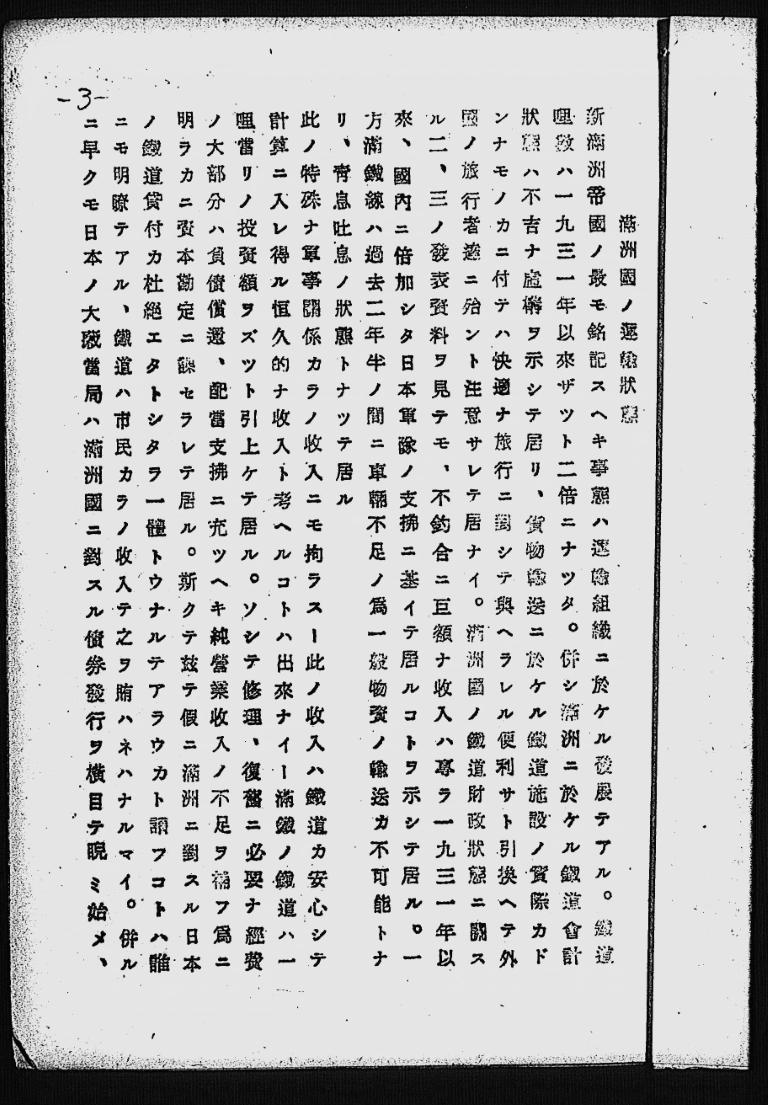 -3-
滿洲國ノ運輸狀態
新滿洲帝國ノ最モ銘記スヘキ事態ハ運輸組織ニ於ケル發展テアル。鐵道
哩數ハ一九三一年以來ザツト二倍ニナツタ。併シ滿洲ニ於ケル鐵道會計
狀態ハ不吉ナ虛構ヲ示シテ居リ、貨物輸送ニ於ケル鐵道施設ノ實際カド
ンナモノカニ付テハ快適ナ旅行ニ對シテ與ヘラレル便利サト引換ヘテ外
國ノ旅行者達ニ殆ント注意サレテ居ナイ。滿洲國ノ鐵道財政狀態ニ關ス
ル二、三ノ發表資料ヲ見テモ、不釣合ニ巨額ナ收入ハ專ラ一九三一年以
來、國內ニ倍加シタ日本軍隊ノ支拂ニ基イテ居ルコトヲ示シテ居ル。一
方滿鐵線ハ過去二年半ノ間ニ車輛不足ノ爲一般物資ノ輸送カ不可能トナ
リ、靑息吐息ノ狀態トナツテ居ル
此ノ特殊ナ軍事關係カラノ收入ニモ拘ラスー此ノ收入ハ鐵道カ安心シテ
計算ニ入レ得ル恒久的ナ收入ト考ヘルコトハ出來ナイー滿鐵ノ鐵道ハ一
哩當リノ投資額ヲズツト引上ケテ居ル。ソシテ修理、復舊ニ必要ナ經費
ノ大部分ハ負債償還、配當支拂ニ充ツヘキ純營業收入ノ不足ヲ補フ爲ニ
明ラカニ資本勘定ニ課セラレテ居ル。斯クテ玆テ假ニ滿洲ニ對スル日本
ノ鐵道貸付カ杜絕エタトシタラ一體トウナルテアラウカト謂フコトハ誰
ニモ明瞭テアル、鐵道ハ市民カラノ收入テ之ヲ賄ハネハナルマイ。併ル
ニ早クモ日本ノ大藏當局ハ滿洲國ニ對スル債券發行ヲ橫目テ睨ミ始メ、